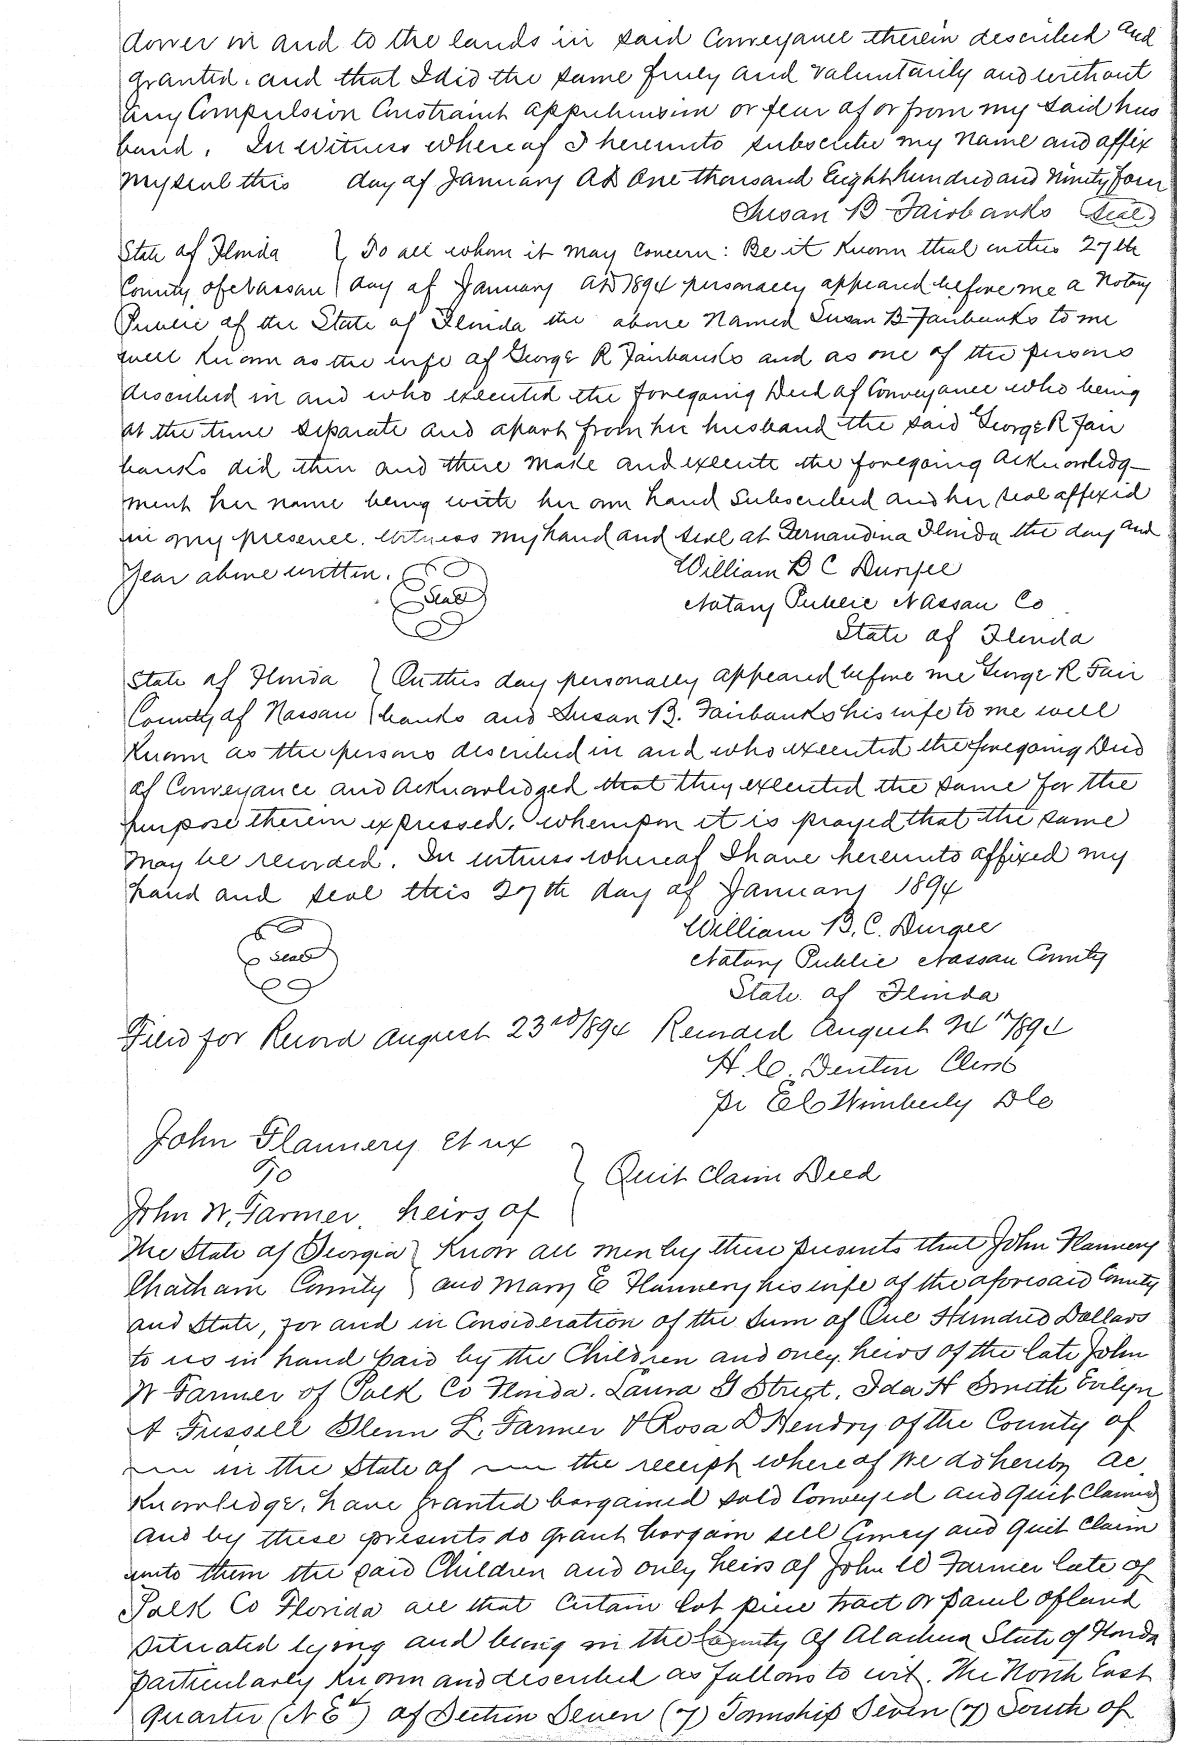 dower in and to the lands in said Conveyance therein described and
granted. and that I did the same freely and voluntarily and without
any Compulsion Constraint apprehension or fear of or from my said hus
band. In witness whereof I hereunto subscribe my name and affix
my seal this day of January AD One thousand Eight hundred and Ninety four
Susan B Fairbanks (Seal)
State of Florida } To all whom it may Concern: Be it Known that on this 27th
County of Nassau } day of January AD 1894 personally appeared before me a Notary
Public of the State of Florida the above Named Susan B Fairbanks to me
well Known as the wife of George R Fairbanks and as one of the persons
described in and who executed the foregoing Deed of Conveyance who being
at the time separate and apart from her husband the said George R Fair
banks did then and there make and execute the foregoing acknowledg-
ment her name being with her own hand subscribed and her seal affixed
in my presence. Witness my hand and seal at Fernandina Florida the day and
Year above written. Seal William B C Duryee
Notary Public Nassau Co
State of Florida
State of Florida } On this day personally appeared before me George R Fair
County of Nassau } banks and Susan B. Fairbanks his wife to me well
Known as the persons described in and who executed the foregoing Deed
of Conveyance and acknowledged that they executed the same for the
purpose therein expressed. whereupon it is prayed that the same
may be recorded. In witness whereof I have hereunto affixed my
hand and seal this 27th day of January 1894
William B. C. Duryee
Seal Notary Public Nassau County
State of Florida
Filed for Record August 23rd 1894 Recorded August 24th 1894
H. C. Denton Clerk
pr E C Wimberly D C
John Flannery et ux
To } Quit Claim Deed
John W. Farmer, heirs of
The State of Georgia } Know all men by these presents that John Flannery
Chatham County } and Mary E Flannery his wife of the aforesaid County
and State, for and in Consideration of the sum of One Hundred Dollars
to us in hand paid by the Children and only heirs of the late John
W Farmer of Polk Co Florida. Laura G Street, Ida H Smith Evelyn
A Fussell Glenn L. Farmer & Rosa D Hendry of the County of
in the State of the receipt whereof we do hereby ac
knowledge, have granted bargained sold Conveyed and Quit Claimed
and by these presents do grant bargain sell Convey and Quit Claim
unto them the said Children and only heirs of John W Farmer late of
Polk Co Florida all that Certain lot piece tract or parcel of land
situated lying and being in the County of Alachua State of Florida
particularly Known and described as follows to wit. The North East
Quarter (N E 4) of Section Seven (7) Township Seven (7) South of